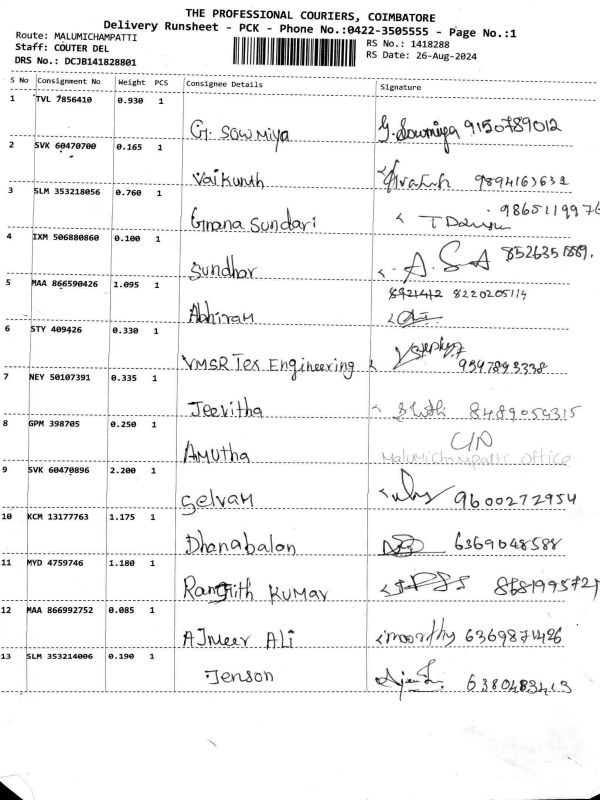 THE PROFESSIONAL COURIERS, COIMBATORE
Delivery Runsheet - PCK - Phone No.:0422-3505555 - Page No.:1
Route: MALUMICHAMPATTI
RS No.: 1418288
Staff: COUTER DEL
RS Date: 26-Aug-2024
DRS No.: DCJB141828801
S No Consignment No Weight PCS Consignee Details Signature
1 TVL 7856410 0.930 1
G. Sowmiya G. Sowmiya 9150789012
2 SVK 60470700 0.165 1
Vaikunth 9894163631
3 SLM 353218056 0.760 1
Gnana Sundari 9865119976
4 IXM 506880860 0.100 1
Sundhar A.SA 8526351889.
5 MAA 866590426 1.095 1
8220205114
Abhiram
6 STY 409426 0.330 1
VMSR Tex Engineering 9597893338
7 NEY 50107391 0.335 1
Jeevitha 8489054315
8 GPM 398705 0.250 1
Amutha Malumichampatti office
9 SVK 60470896 2.200 1
Selvam 9600272954
10 KCM 13177763 1.175 1
Dhanabalan 6369048588
11 MYD 4759746 1.180 1
Ranjith Kumar 8681995721
12 MAA 866992752 0.085 1
AJmeer Ali moorthy 6369871426
13 SLM 353214006 0.190 1
Jenson 6380483413